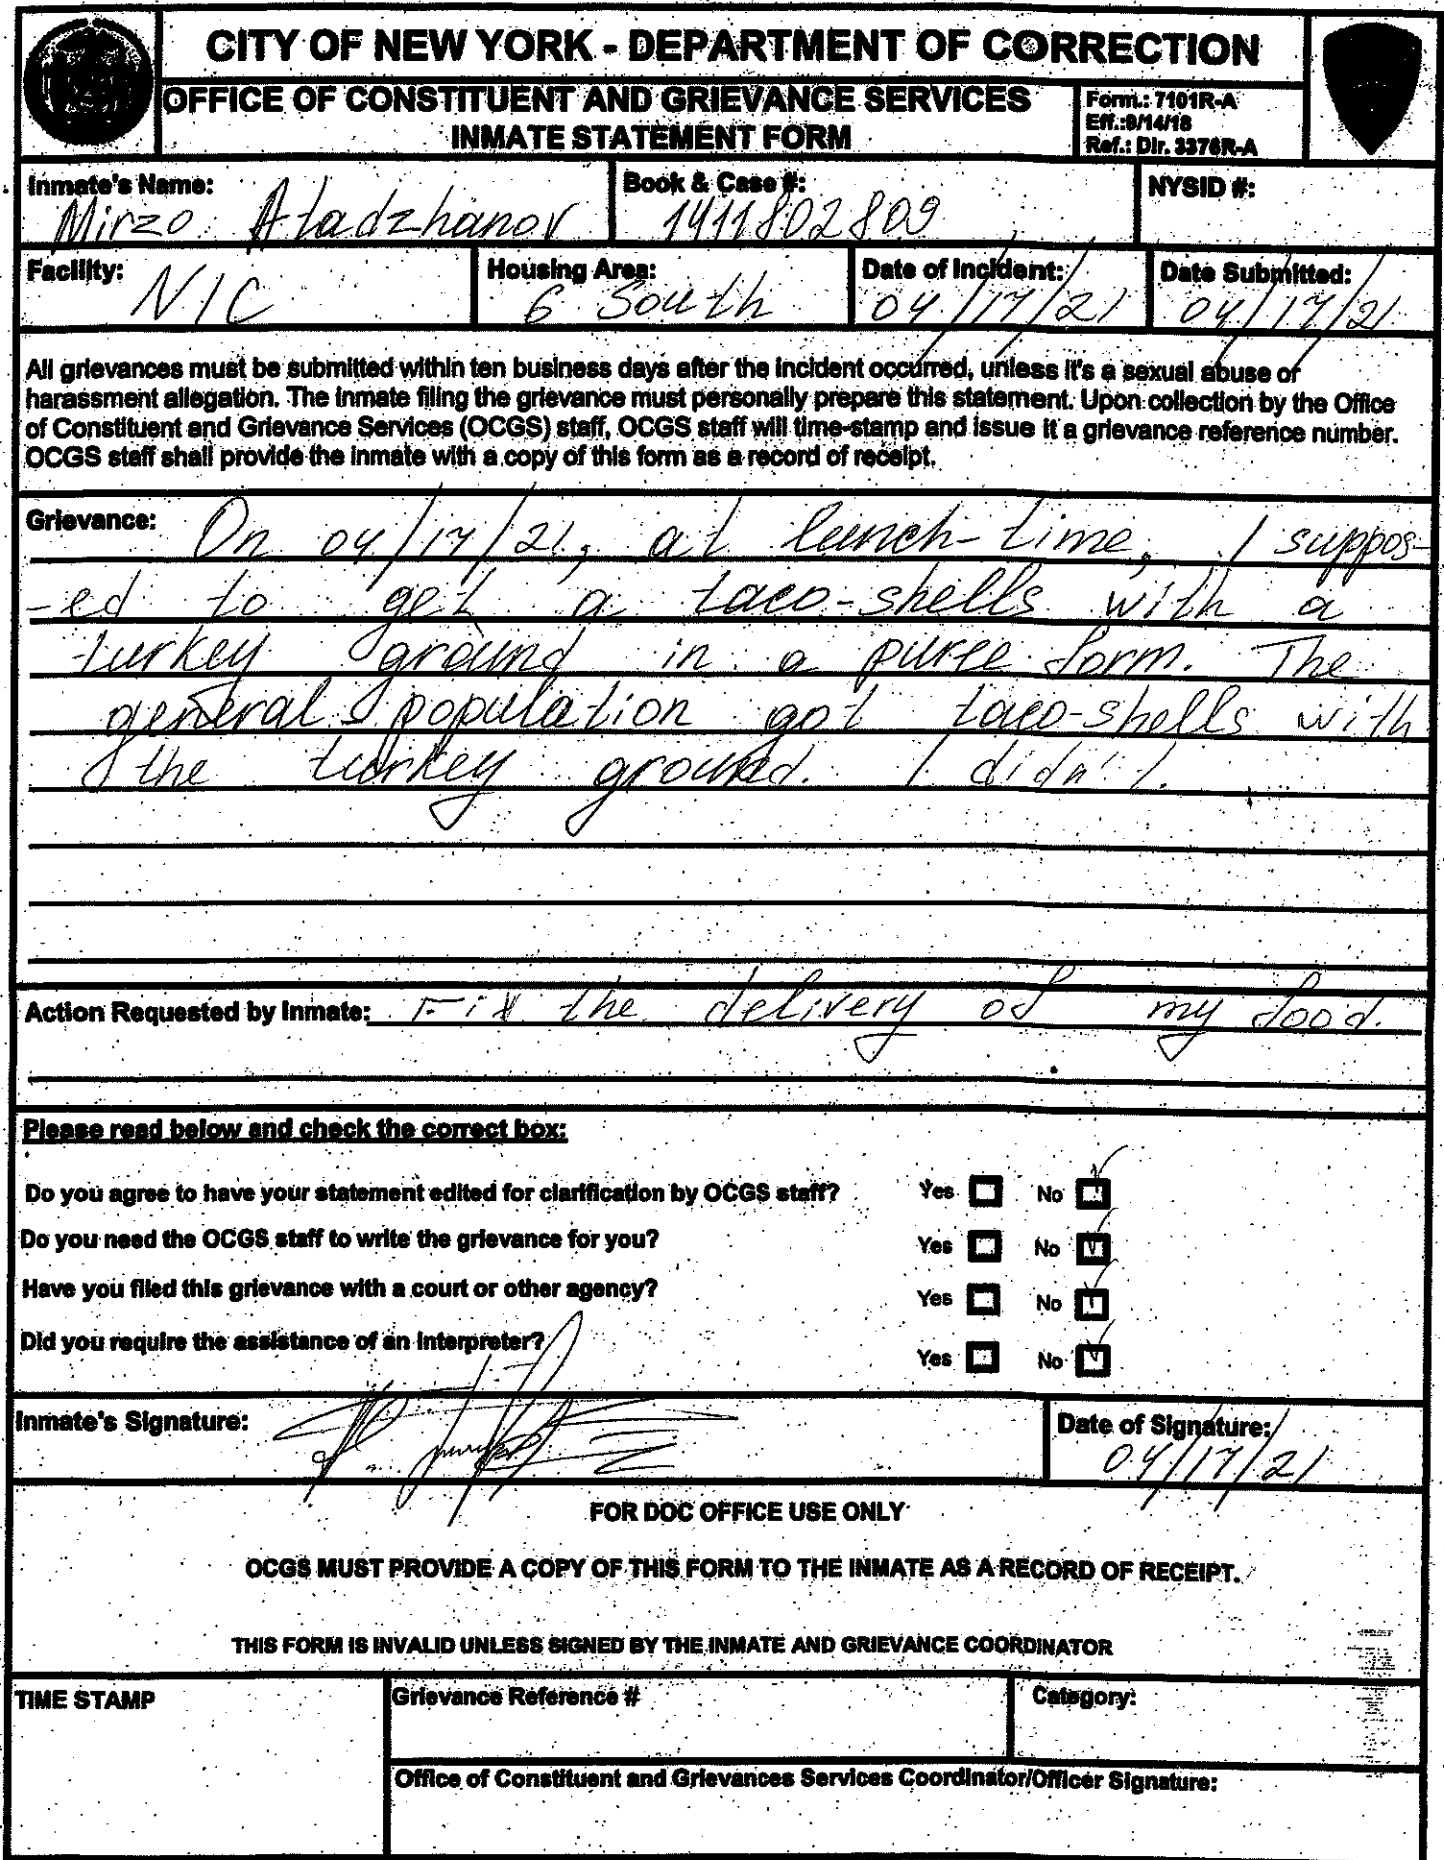 CITY OF NEW YORK - DEPARTMENT OF CORRECTION
OFFICE OF CONSTITUENT AND GRIEVANCE SERVICES
INMATE STATEMENT FORM
Form.: 7101R-A
Eff.:9/14/18
Ref.: Dir. 3376R-A
Inmate's Name:
Mirzo Atadzhanov
Book & Case #:
1411802809
NYSID #:
Facility:
NIC
Housing Area:
6 South
Date of Incident:
04/17/21
Date Submitted:
04/17/21
All grievances must be submitted within ten business days after the incident occurred, unless it's a sexual abuse or
harassment allegation. The inmate filing the grievance must personally prepare this statement. Upon collection by the Office
of Constituent and Grievance Services (OCGS) staff, OCGS staff will time-stamp and issue it a grievance reference number.
OCGS staff shall provide the inmate with a copy of this form as a record of receipt.
Grievance: On 04/17/21, at lunch-time, I suppos-
-ed to get a taco-shells with a
turkey ground in a puree form. The
general population got taco-shells with
the turkey ground. I didn't.
Action Requested by Inmate: Fix the delivery of my food.
Please read below and check the correct box:
Do you agree to have your statement edited for clarification by OCGS staff? Yes No
Do you need the OCGS staff to write the grievance for you? Yes No
Have you filed this grievance with a court or other agency? Yes No
Did you require the assistance of an interpreter? Yes No
Inmate's Signature:
Date of Signature:
04/17/21
FOR DOC OFFICE USE ONLY
OCGS MUST PROVIDE A COPY OF THIS FORM TO THE INMATE AS A RECORD OF RECEIPT.
THIS FORM IS INVALID UNLESS SIGNED BY THE INMATE AND GRIEVANCE COORDINATOR
TIME STAMP
Grievance Reference #
Category:
Office of Constituent and Grievances Services Coordinator/Officer Signature: